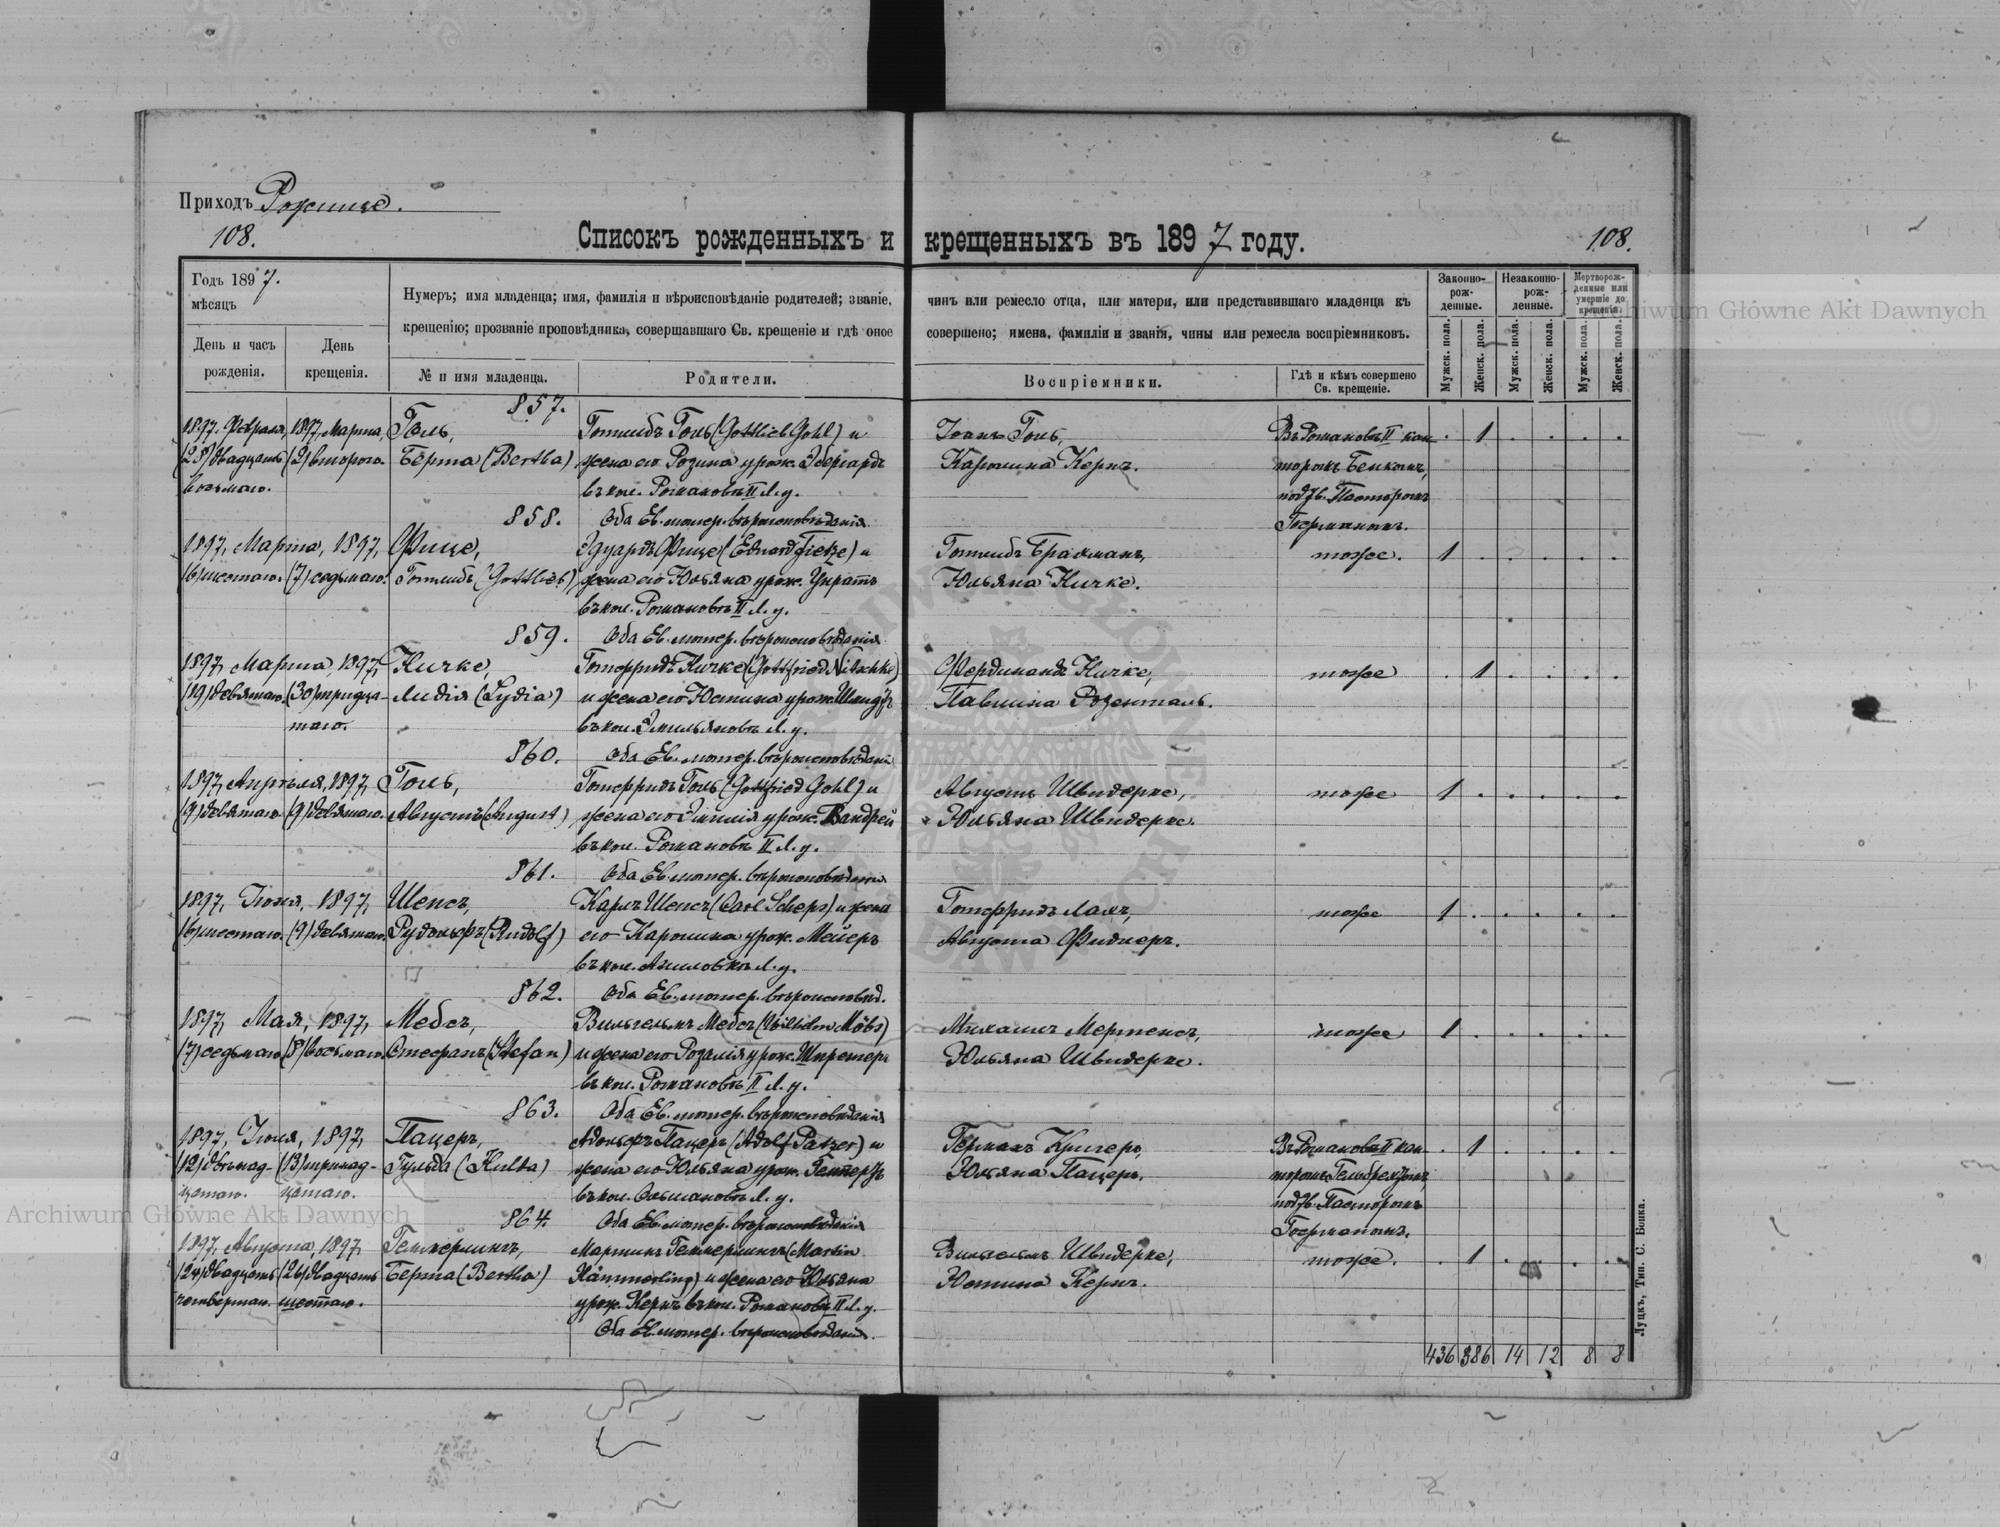 Приходъ Рожище.
108.
Списокъ рожденныхъ и крещенныхъ въ 1897 году.
108.
Годъ 1897.
мѣсяцъ
День и часъ рожденія.
День крещенія.
Нумеръ; имя младенца; имя, фамилія и вѣроисповѣданіе родителей; званіе, чинъ или ремесло отца, или матери, или представившаго младенца къ
крещенію; прозваніе проповѣдника, совершавшаго Св. крещеніе и гдѣ оное совершено; имена, фамиліи и званія, чины или ремесла воспріемниковъ.
№ и имя младенца.
Родители.
Воспріемники.
Гдѣ и кѣмъ совершено Св. крещеніе.
Законно-рож-денные.
Незаконно-рож-денные.
Мертворож-денные или умершіе до крещенія.
Мужск. пола.
Женск. пола.
Мужск. пола.
Женск. пола.
Мужск. пола.
Женск. пола.
857.
1897, Февраля, 1897, Марта, Голь, Готлибъ Голь (Gottlieb Gohl) и Іоанъ Голь, Въ Романовкѣ II кан- . 1 . . . .
(28) двадцать (2) второго. Берта (Bertha) жена его Розина урож. Эбергардъ Каролина Кернъ. торомъ Бенкомъ,
восьмаго. въ кол. Романовкѣ II Л. у. подтв. Пасторомъ
858. Оба Ев. лютер. вѣроисповѣданія Германомъ.
1897, Марта, 1897, Фице, Эдуардъ Фице (Eduard Fietze) и Готлибъ Бракманъ, тоже. 1 . . . . .
(6) шестаго. (7) седьмаго. Готлибъ (Gottlieb) жена его Юльяна урож. Юльяна Ничке.
въ кол. Романовкѣ II Л. у.
859. Оба Ев. лютер. вѣроисповѣданія
1897, Марта, 1897, Ничке, Готфридъ Ничке (Gottfried Nitschke) Фердинандъ Ничке, тоже . 1 . . . .
(19) девятаго. (30) тридца- Лидія (Lydia) и жена его Юстина урож. Павлина Розенталь.
таго. въ кол. Эмильяновкѣ Л. у.
860. Оба Ев. лютер. вѣроисповѣданія
1897, Апрѣля, 1897, Голь, Готфридъ Голь (Gottfried Gohl) и Августъ Швидерке, тоже 1 . . . . .
(9) девятаго (9) девятаго. Августъ (August) жена его Эмилія урож. Вандрей Юльяна Швидерке.
въ кол. Романовкѣ II Л. у.
861. Оба Ев. лютер. вѣроисповѣданія
1897, Іюня, 1897, Шепсъ, Карлъ Шепсъ (Carl Scheps) и жена Готфридъ Ламъ, тоже 1 . . . . .
(6) шестаго. (9) девятаго. Рудольфъ (Rudolf) его Каролина урож. Мейеръ Августа Фидлеръ.
въ кол. Л. у.
862. Оба Ев. лютер. вѣроисповѣд.
1897, Мая, 1897, Мебсъ, Вильгельмъ Мебсъ (Wilhelm Möbs) Михаилъ Мертенсъ, тоже 1 . . . . .
(7) седьмаго (8) восьмаго. Стефанъ (Stefan) и жена его Розалія урож. Юльяна Швидерке.
въ кол. Романовкѣ II Л. у.
863. Оба Ев. лютер. вѣроисповѣданія
1897, Іюня, 1897, Пацеръ, Адольфъ Пацеръ (Adolf Patzer) и Германъ Кригеръ, Въ Романовкѣ II кан- . 1 . . . .
(12) двѣнад- (13) тринад- Гульда (Hulda) жена его Юльяна урож. Юльяна Пацеръ. торомъ Гельбрехтомъ,
цатаго. цатаго. въ кол. Л. у. подтв. Пасторомъ
864. Оба Ев. лютер. вѣроисповѣданія Германомъ.
1897, Августа, 1897, Геммерлингъ, Мартинъ Геммерлингъ (Martin Вильгельмъ Швидерке, тоже. . 1 . . . .
(24) двадцать (26) двадцать Берта (Bertha) Hämmerling) и жена его Юльяна Юстина Кернъ.
четвертаго. шестаго. урож. Кернъ въ кол. Романовкѣ II Л. у.
Оба Ев. лютер. вѣроисповѣданія.
436 386 14 12 8 8
Луцкъ, Тип. С. Бонка.
Archiwum Główne Akt Dawnych
Archiwum Główne Akt Dawnych